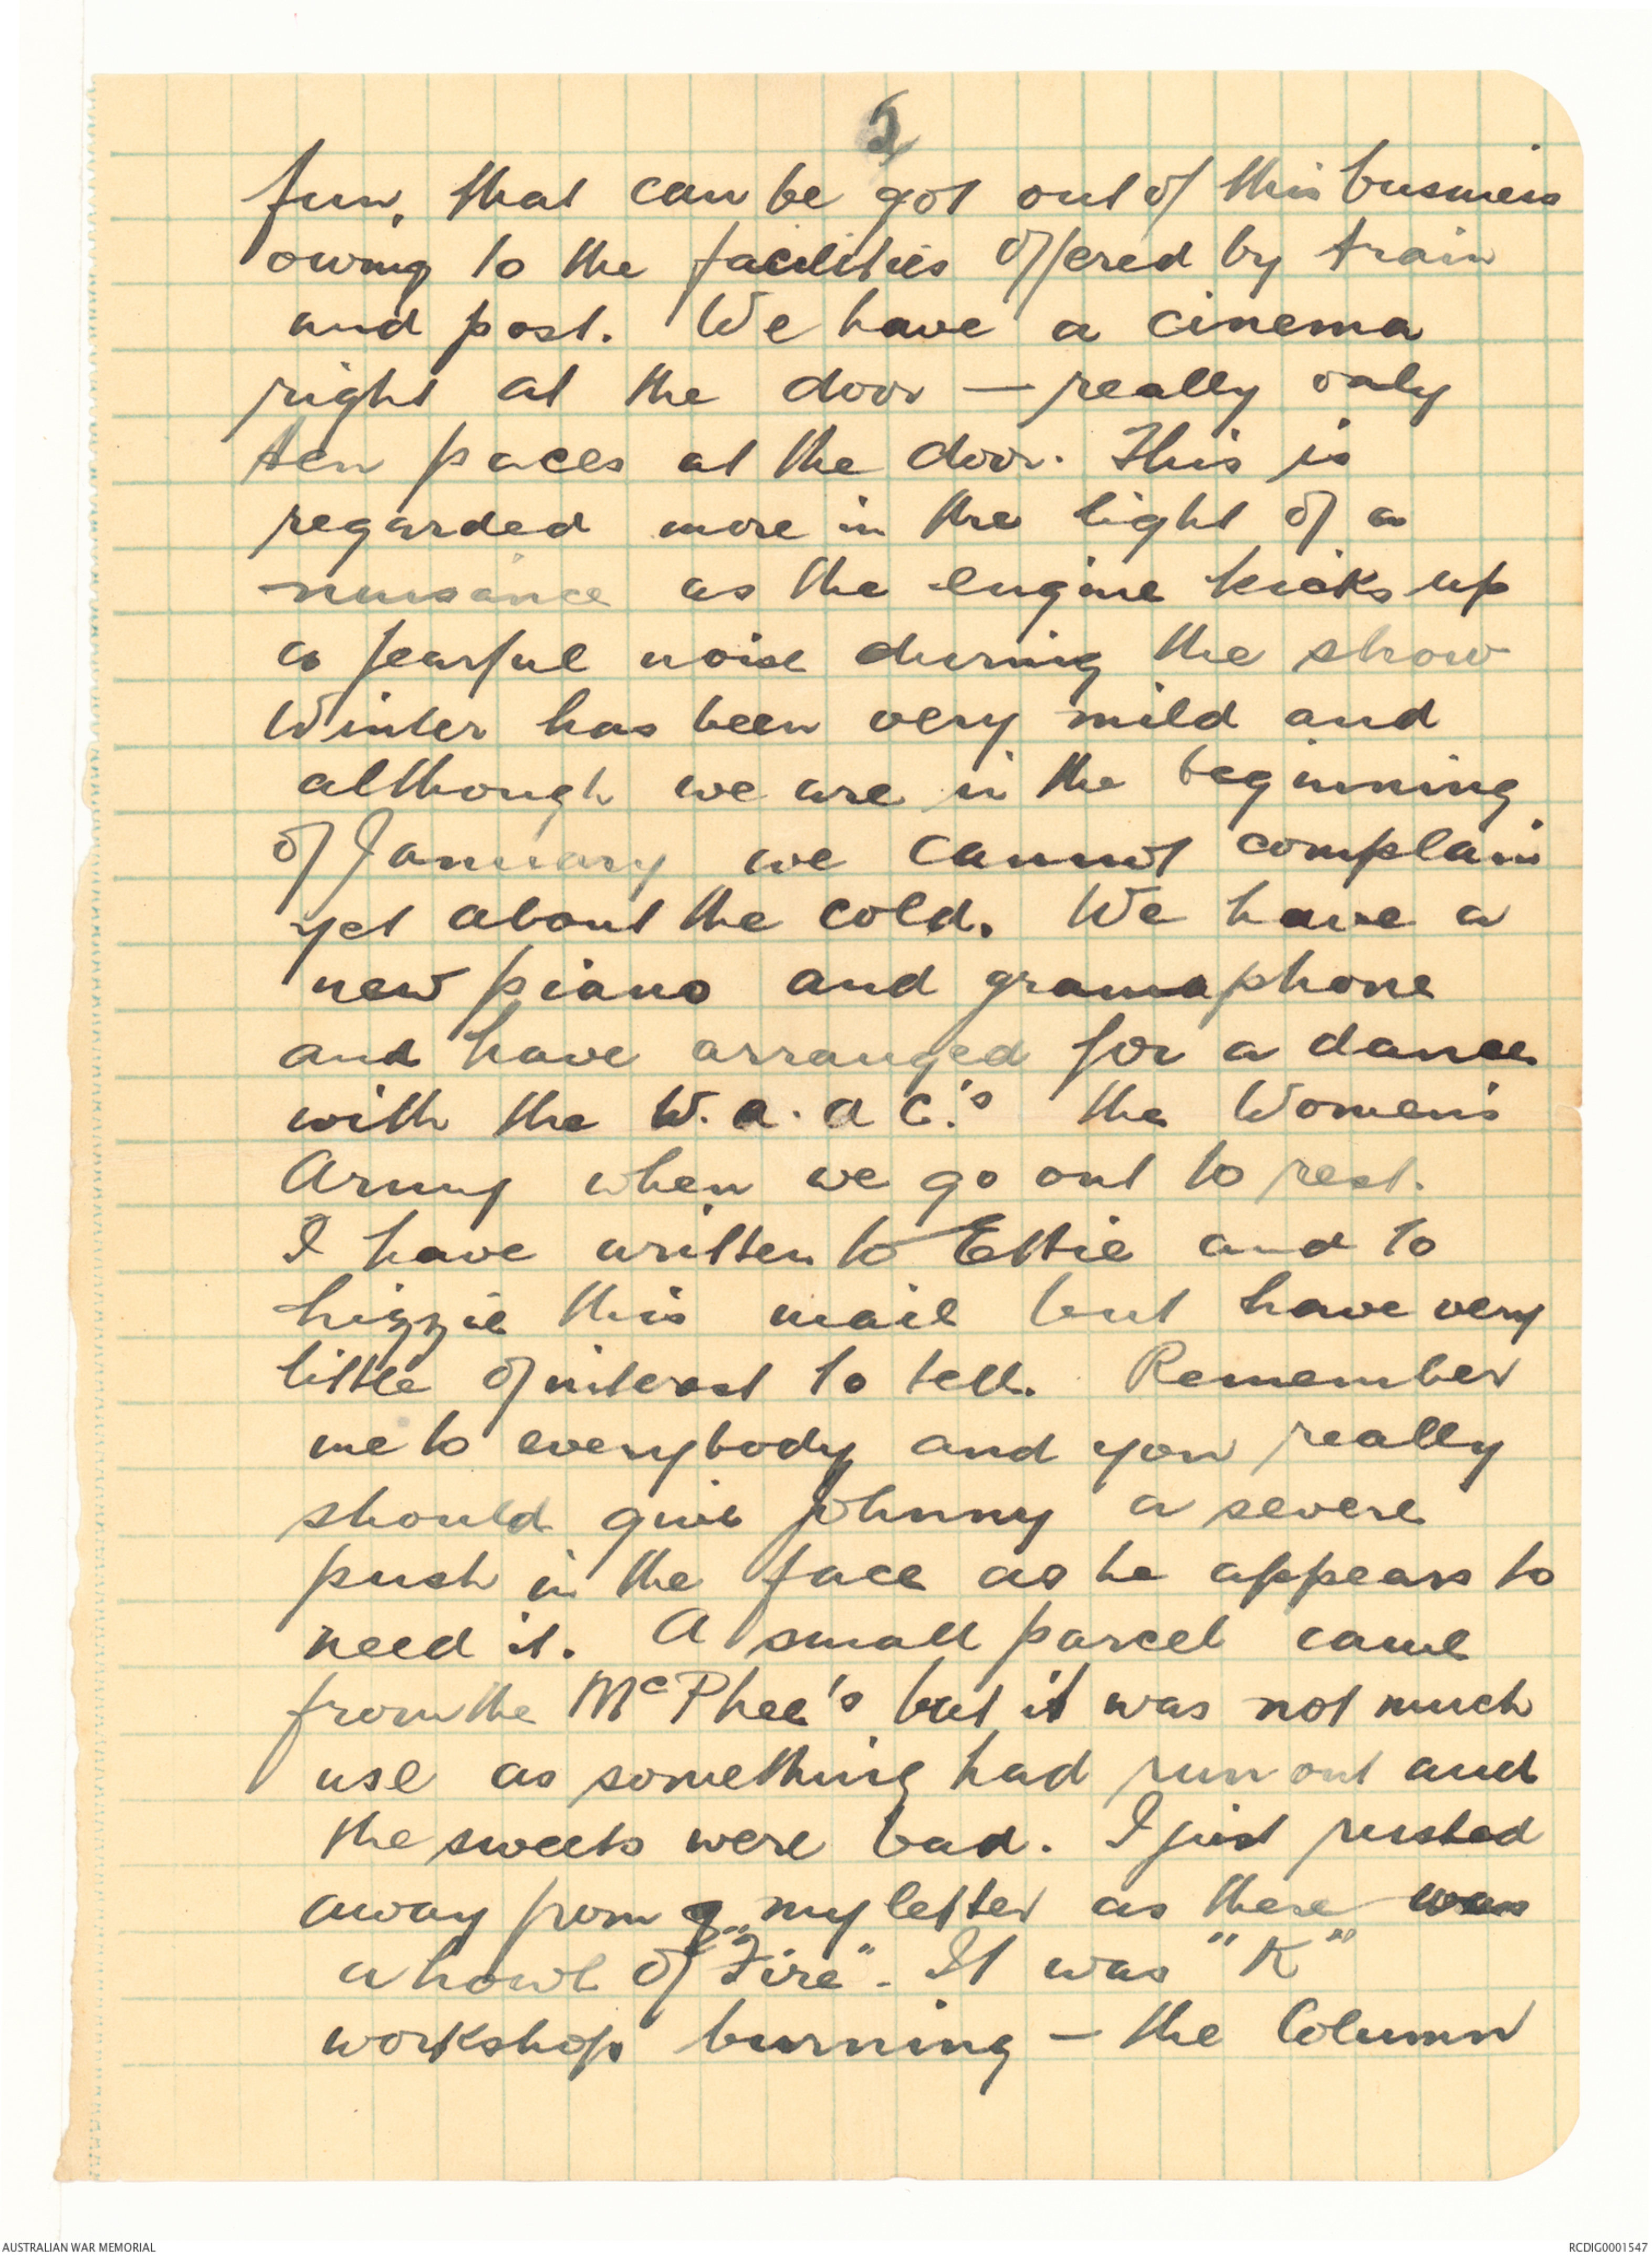 2
fun, that can be got out of this business
owing to the facilities offered by train
and post. We have a cinema
right at the door — really only
ten paces at the door. This is
regarded more in the light of a
nuisance as the engine kicks up
a fearful noise during the show
Winter has been very mild and
although we are in the beginning
of January we cannot complain
yet about the cold. We have a
new piano and gramaphone
and have arranged for a dance
with the W.A.A C.'s the Women's
Army when we go out to rest.
I have written to Ettie and to
Lizzie this mail but have very
little of interest to tell. Remember
me to everybody and you really
should give Johnny a severe
push in the face as he appears to
need it. A small parcel came
from the McPhee's but it was not much
use as something had run out and
the sweets were bad. I just rushed
away from my letter as there was
a howl of "Fire". It was "K"
workshop burning — the Column
AUSTRALIAN WAR MEMORIAL
RCDIG0001547